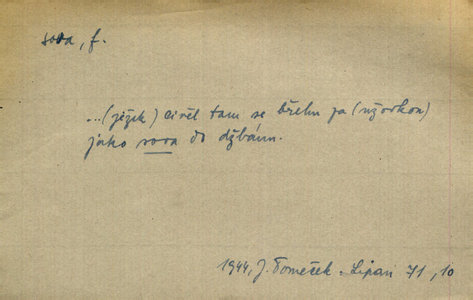 sova, f.
...(ježik) civěl tam se břehu za (užovkou)
jako sova do džbánu.
1944, J. Tomeček. Lipan 71, 10